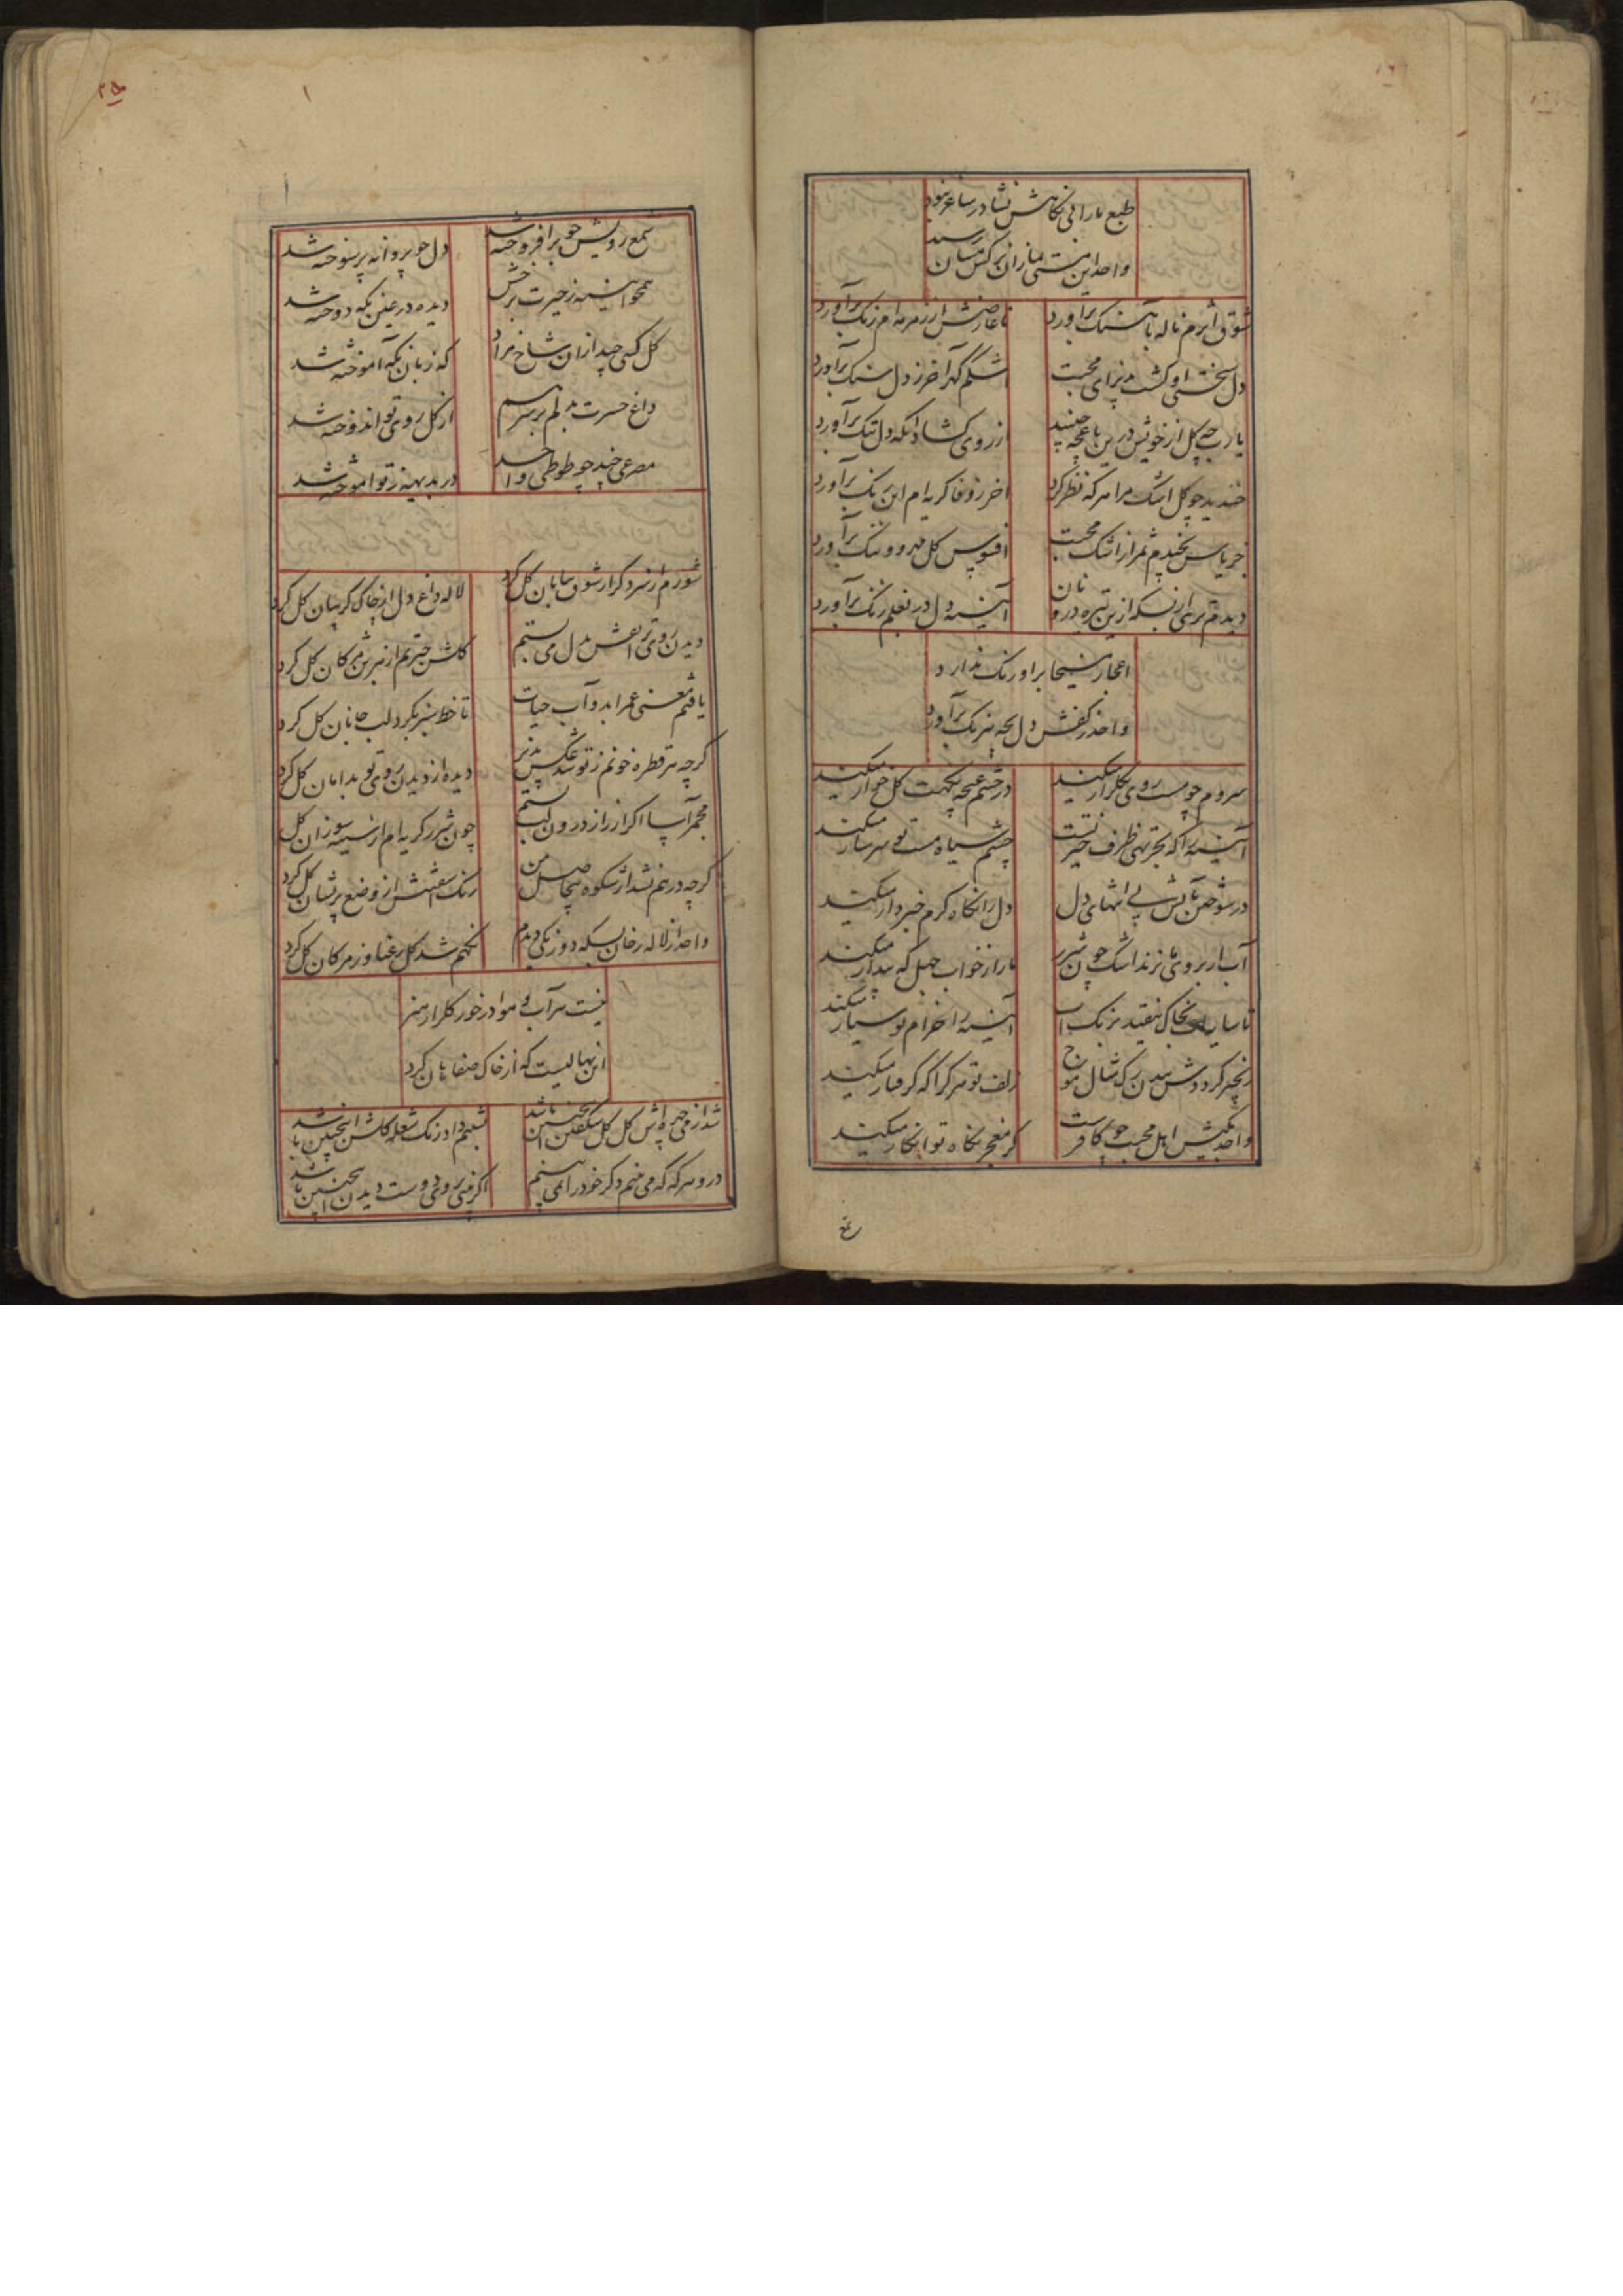 طبع ما را نی نکاهش نشا در ساغر نبود
واحد این مستی بما زان نرکس مستان رسید
شوق اثرم ناله باهنک برآورد
تا عارضش از زمزمه ام رنک برآورد
دل سختی او کشت پذیرای محبت
اشکم کهر آخر ز دل سنک برآورد
یا رب چه کل از خویش درین باغچه چیند
از روی کشاد آنکه دل تنک برآورد
خندید چو کل اشک مرا هر که نظر کرد
آخر ز وفا کریه ام این رنک برآورد
جز یاس نچیدم ثمر از اشک محبت
افسوس کل مهر و وفا رنک برآورد
دیدم ز بس از تیره درونان
آینه دل در بغلم زنک برآورد
اعجاز مسیحا بر او رنک ندارد
واحد ز کفش دل بچه نیرنک برآورد
سروم چو مست روی بکلزار میکند
در چشم غنچه نکهت کل خوار میکند
آینه را که بحر تهی ظرف حیرتست
چشم سیاه مست تو سرشار میکند
در سوختن تپش بی انتهای دل
دل را نکاه کرم خبردار میکند
آب ار بروی ما نزند اشک چون شرر
ما را ز خواب جهل که بیدار میکند
تا سایه ات بخاک نیفتد بزیر پا
آینه را خرام تو سیار میکند
زنجیر کرددش ببدن رک مثال موج
زلف تو هر کرا که کرفتار میکند
واحد بکیش اهل محبت چو کافرست
کر معجز نکاه تو انکار میکند
شمع رویش چو برافروخته شد
دل چو پروانه پر سوخته شد
همچو آینه ز حیرت برخش
دیده در عین نکه دوخته شد
کل کسی چید ازان شاخ مراد
که زبان نکه آموخته شد
داغ حسرت بدلم بر سر هم
از کل روی تو اندوخته شد
مصرعی چند چو طوطی واحد
در بدیهه ز تو آموخته شد
شورم از سر دکر از شوق بیابان کل کرد
لاله داغ دل از خاک کریبان کل کرد
دیدن روی تو نقش بدل می بستم
کلشن حیرتم از هر بن مژکان کل کرد
یافتم معنی عمر ابد و آب حیات
تا خط سبز بکرد لب جانان کل کرد
کرچه هر قطره خونم ز تو شد عکس پذیر
دیده از دیدن روی تو بدامان کل کرد
مجمر آسا اکر از راز درون لب بستم
چون شرر کریه ام از سینه سوزان کل
کرچه درهم نشد از شکوه بیجا من
رنک آشفتنش از وضع پریشان کل کرد
واحد از لاله رخان بسکه دو رنکی دیدم
نکهم شد کل رعنا و ز مژکان کل کرد
نیست هر آب و هوا در خور کلزار هنر
این نهالیست که از خاک صفاهان کل کرد
شد از می چهره اش کل کل شکفتن اینچنین باشد
شبیم داد رنک شعله کلشن اینچنین باشد
در و هر که که می بینم دکر خود را نمی بینم
اکر بینی روی دوست دیدن اینچنین باشد